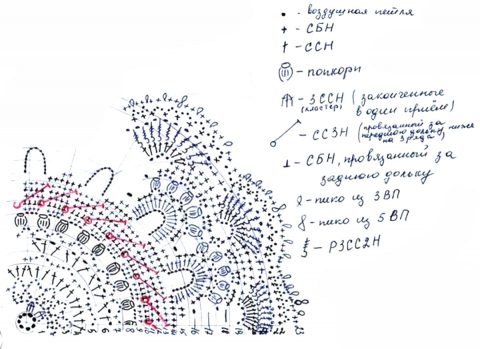 - воздушная петля
+ - СБН
† - ССН
- попкорн
- 3ССН (законченные
(кластер) в один приём)
- СС3Н (провязанный за
переднюю дольку ниже
на 3 ряда)
⊥ - СБН, провязанный за
заднюю дольку
- пико из 3ВП
- пико из 5ВП
- РЗСС2Н